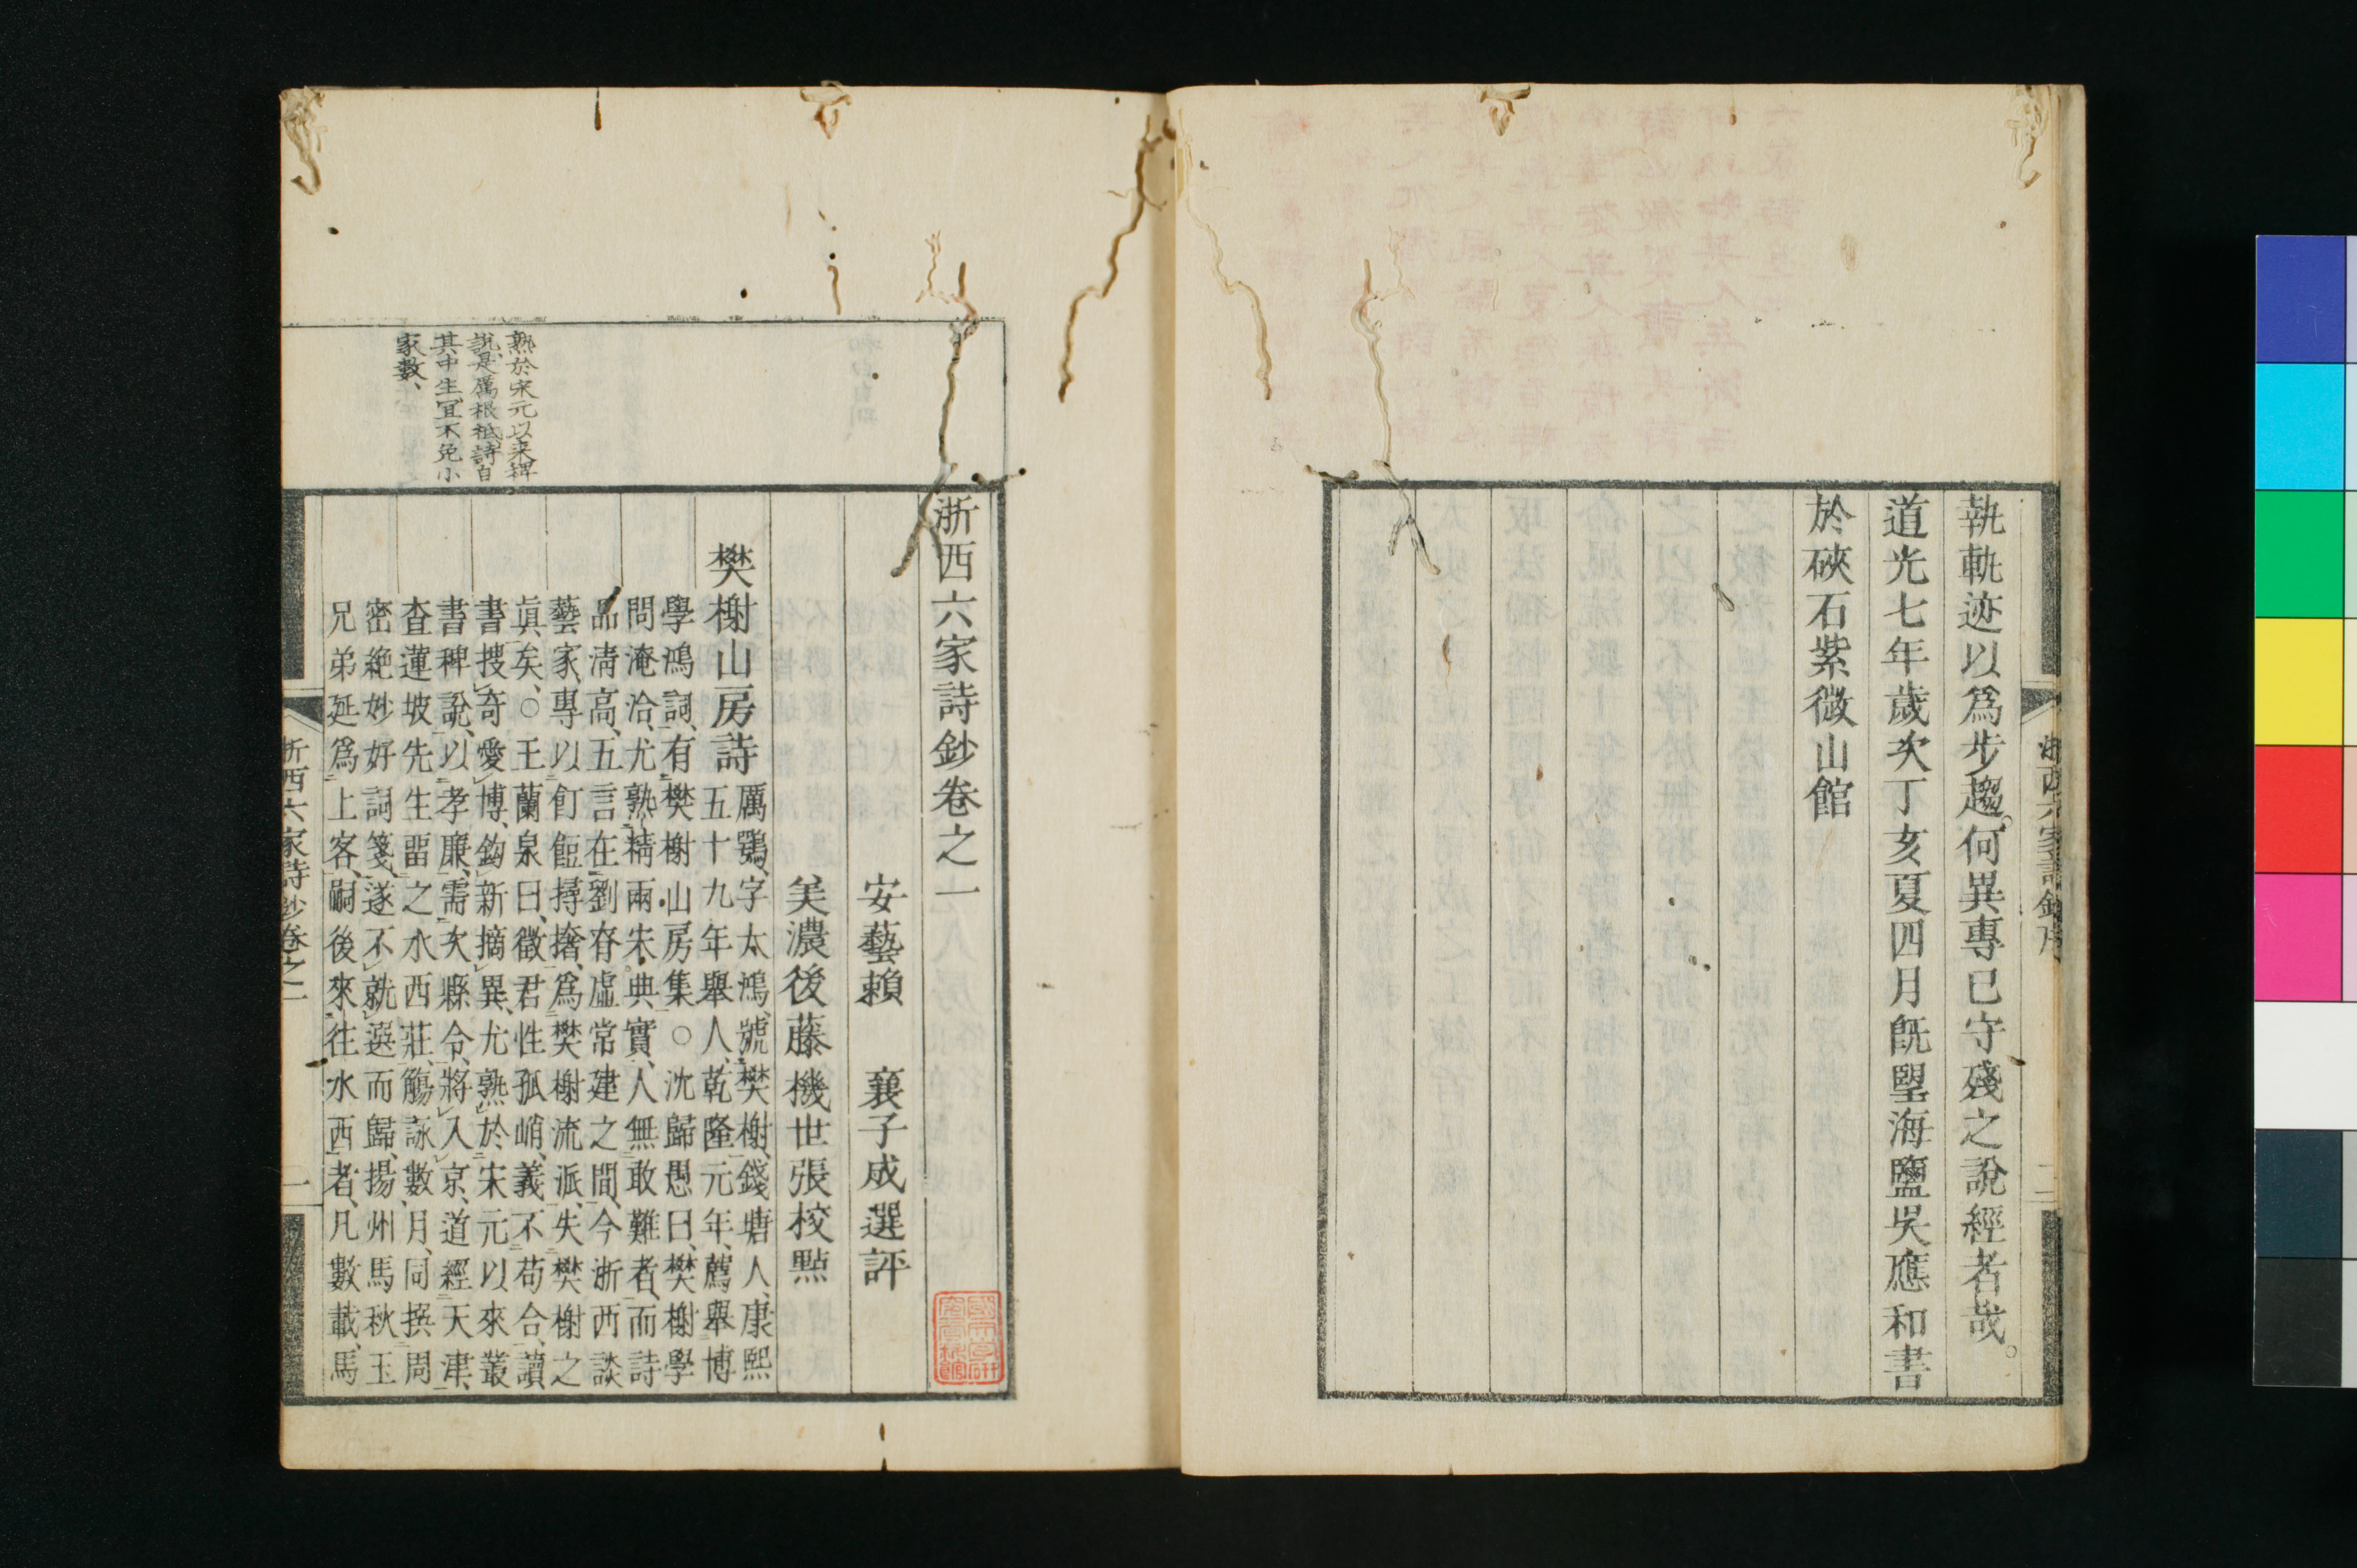 執軌迹以爲步趨。何異專已守殘之說經者哉。
道光七年歲次丁亥夏四月旣朢海鹽吳應和書
於硤石紫微山館
浙西六家詩鈔卷之一
安藝賴　襄子成選評
美濃後藤機世張校點
樊榭山房詩
厲鶚、字太鴻、號樊榭、錢塘人、康熙
五十九年舉人、乾隆元年、薦舉博
學鴻詞、有樊榭山房集○沈歸愚曰、樊榭學
問淹洽、尤熟精兩宋典實、人無敢難者、而詩
品淸高、五言在劉眘虛常建之間、今浙西談
藝家、專以飣餖撏撦、爲樊榭流派、失樊榭之
眞矣、○王蘭泉曰、徵君性孤峭、義不苟合、讀
書搜奇愛博、鉤新摘異、尤熟於宋元以來叢
書稗說、以孝廉、需次縣令、將入京、道經天津、
査蓮坡先生畱之水西莊、觴詠數月、同撰周
密絶妙好詞箋、遂不就選而歸、揚州馬秋玉
兄弟延爲上客、嗣後來往水西者、凡數載、馬
熟於宋元以来稗
說、是厲根柢、詩自
其中生、宜不免小
家數、
浙西六家詩鈔卷之一
一